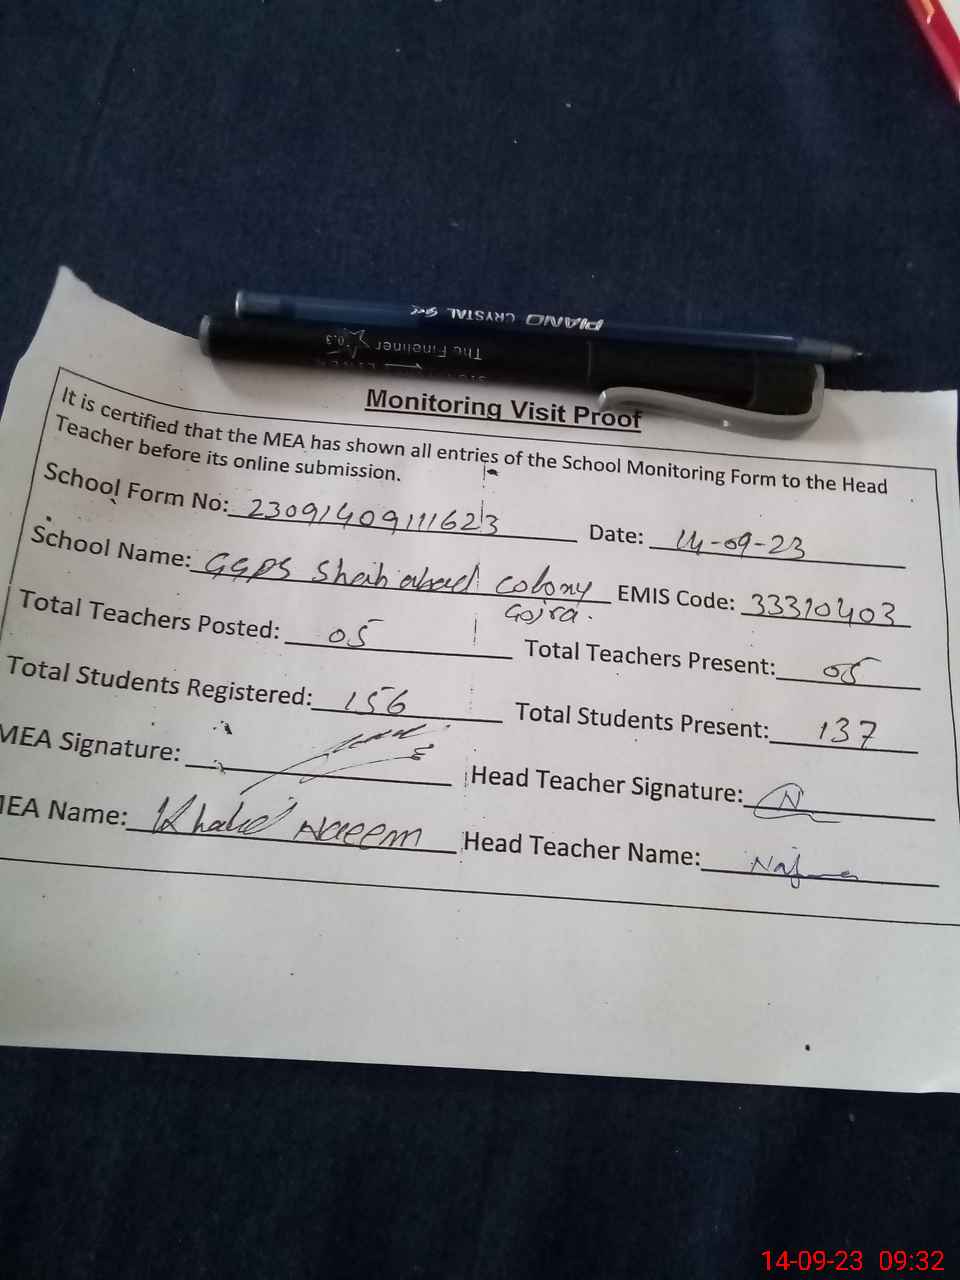 PIANO CRYSTAL Gel
The Fineliner 0.3
Monitoring Visit Proof
It is certified that the MEA has shown all entries of the School Monitoring Form to the Head
Teacher before its online submission.
School Form No: 23091409111623 Date: 14-09-23
School Name: GGPS Shahabad Colony EMIS Code: 33310403
Gojra.
Total Teachers Posted: 05 Total Teachers Present: 05
Total Students Registered: 156 Total Students Present: 137
MEA Signature: Head Teacher Signature: N
MEA Name: Khalid Naeem Head Teacher Name: Najma
14-09-23 09:32